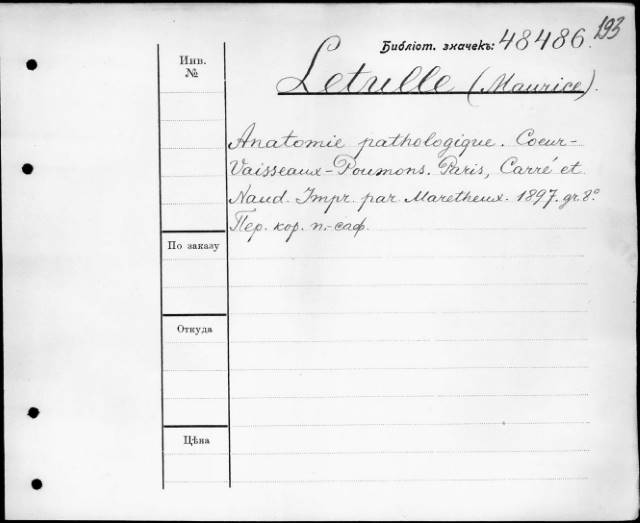 193
Библіот. значекъ: 48486.
Letulle (Maurice).
Инв. №
Anatomie pathologique. Coeur-
Vaisseaux-Poumons. Paris, Carré et
Naud. Impr. par Maretheux. 1897. gr. 8°
Пер. кор. п.-саф.
По заказу
Откуда
Цѣна